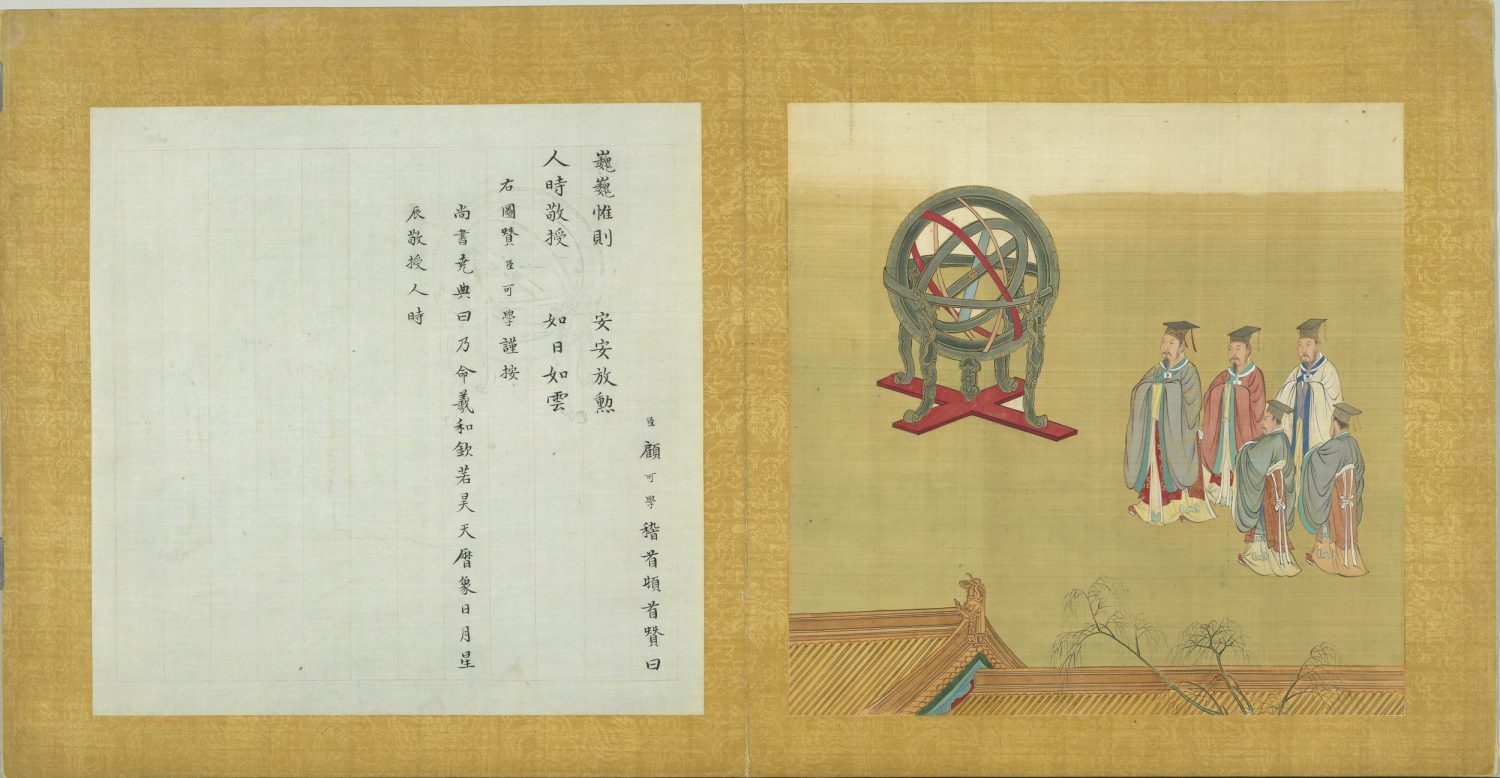 臣顧可學稽首頓首贊曰
巍巍惟則 安安放勲
人時敬授 如日如雲
右圖贊臣可學謹按
尚書堯典曰乃命羲和欽若昊天曆象日月星
辰敬授人時